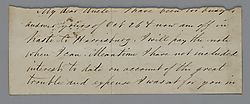 My dear Uncle I have been too busy to
answer yours of Oct 26 & now am off in
haste to Harrisburg I will pay the note
when I can. Meantime I have not included
interest to date on account of the great
trouble and expense I was at for you in